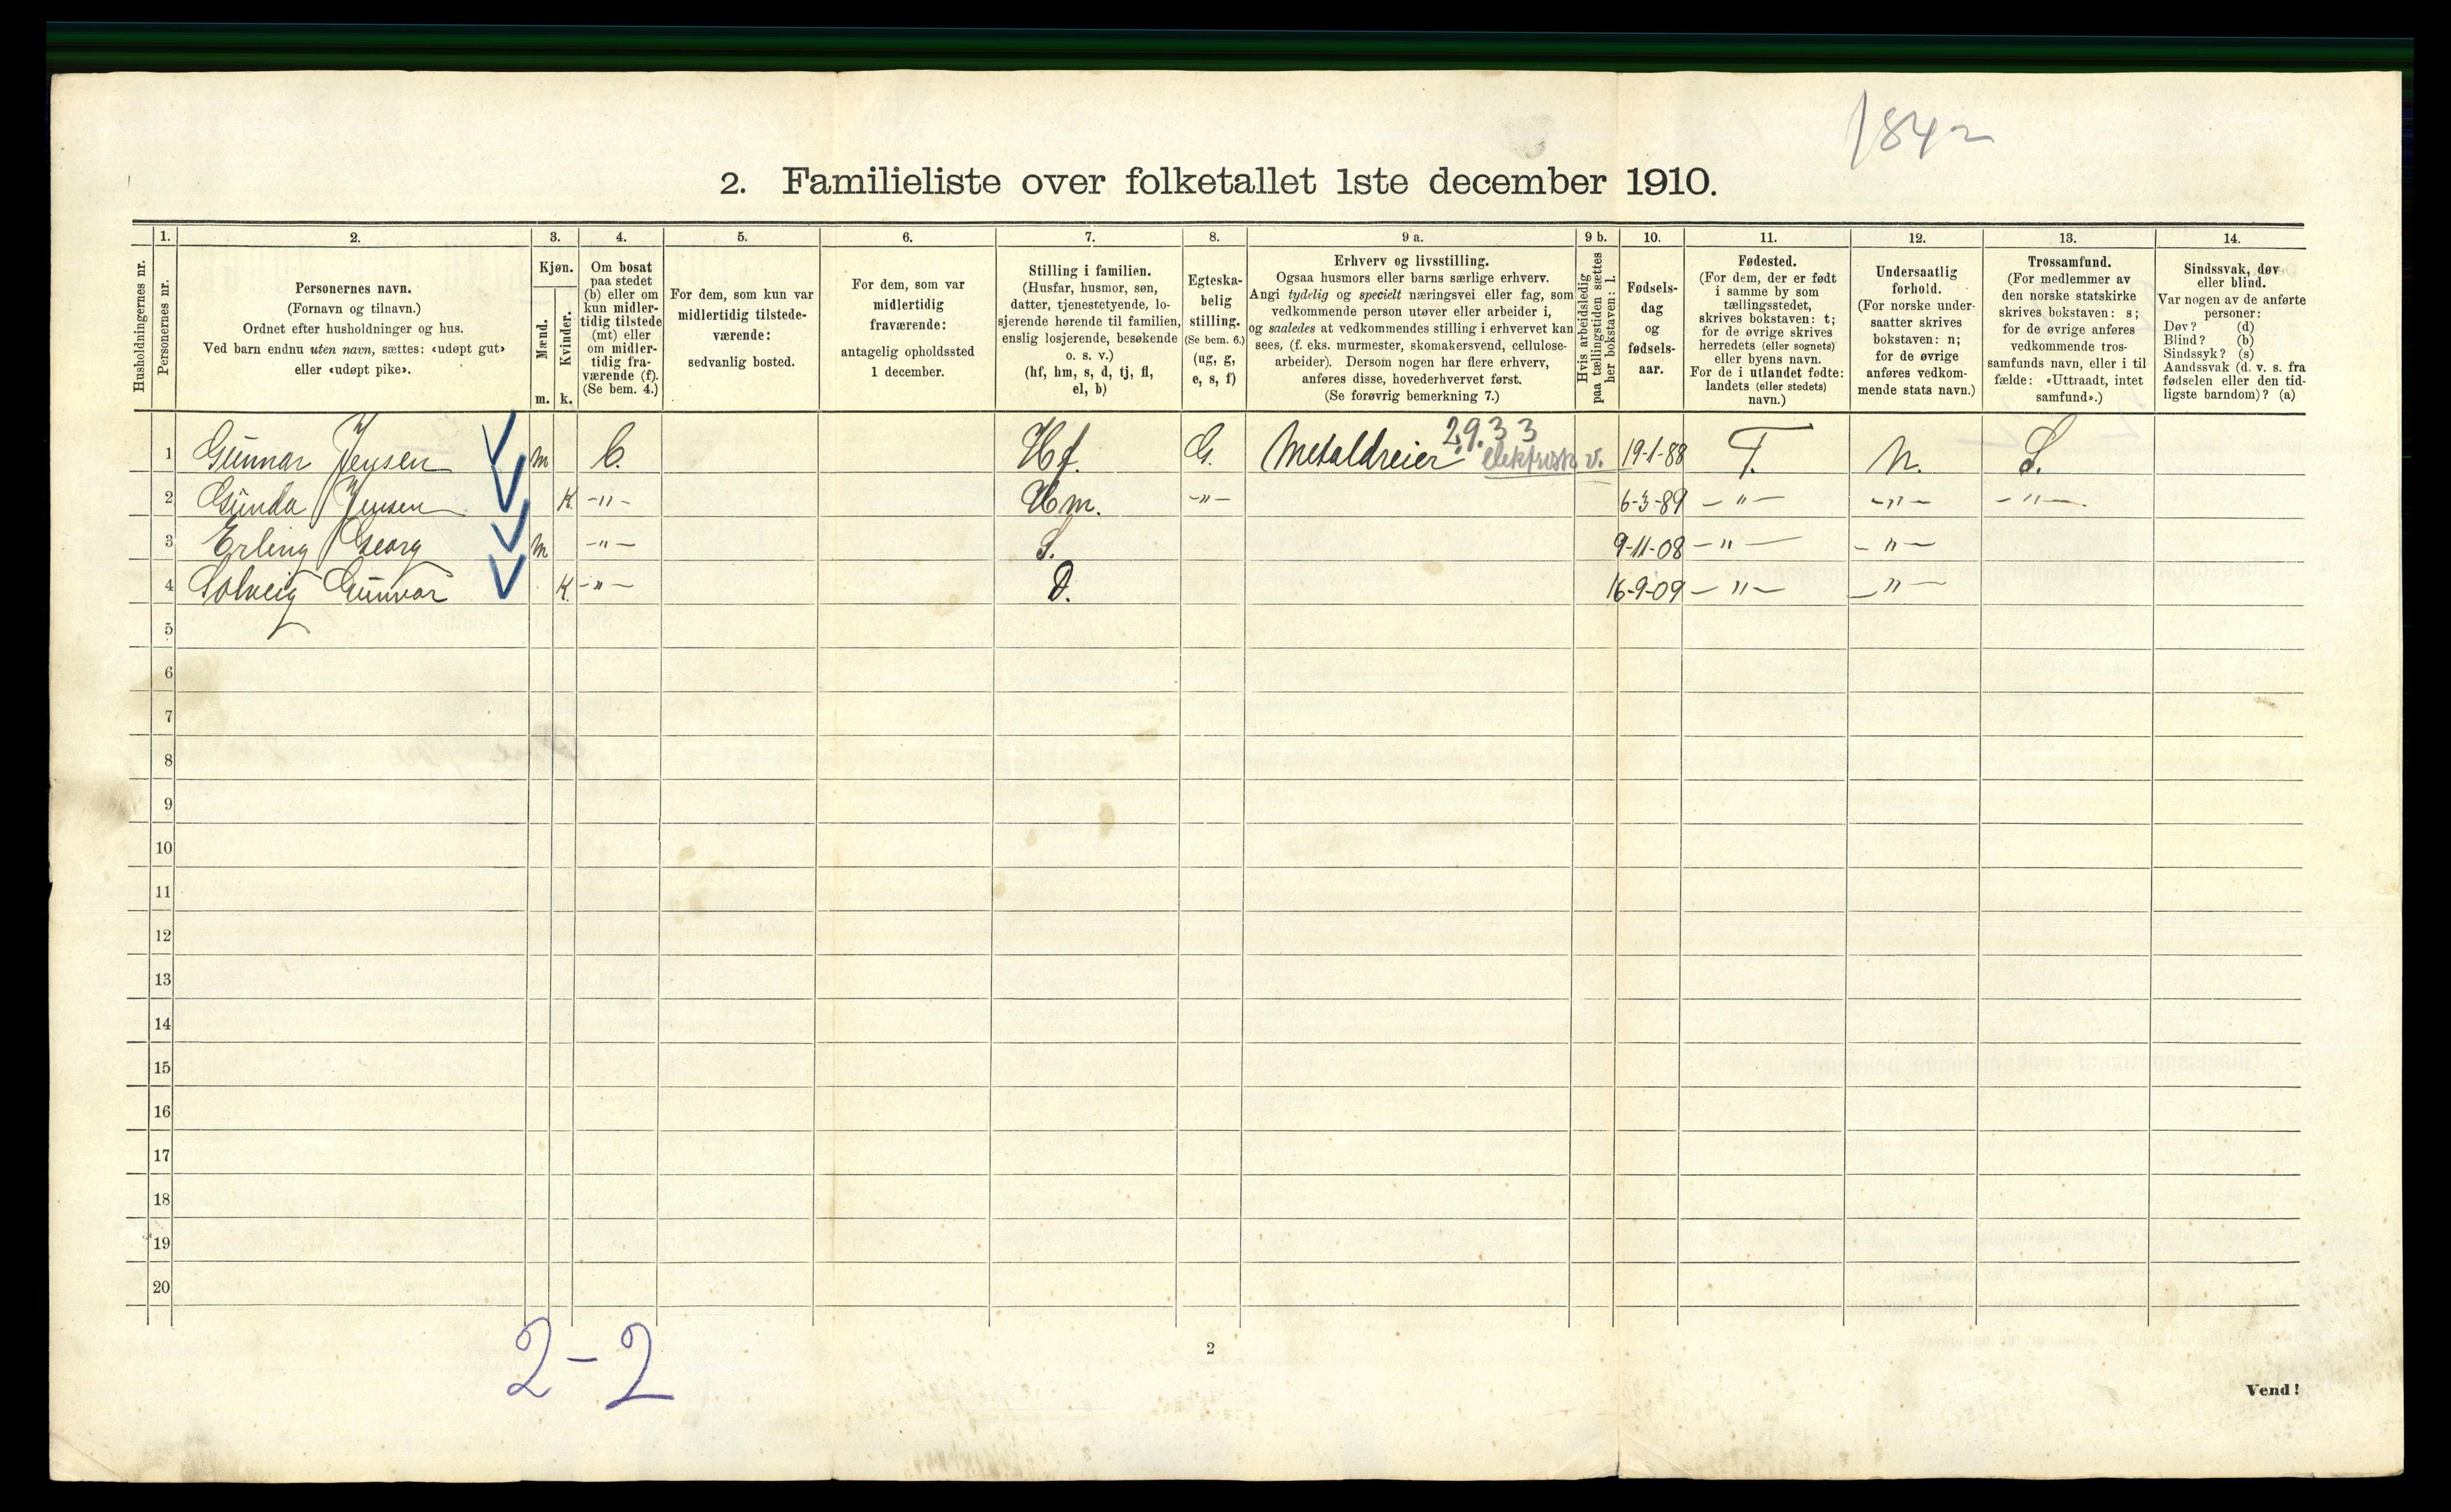 1842
2. Familieliste over folketallet 1ste december 1910.
1. 2. 3. 4. 5. 6. 7. 8. 9 a. 9 b. 10. 11. 12. 13. 14.
Husholdningernes nr.
Personernes nr.
Personernes navn.
(Fornavn og tilnavn.)
Ordnet efter husholdninger og hus.
Ved barn endnu uten navn, sættes: «udøpt gut»
eller «udøpt pike».
Kjøn.
Mænd.
Kvinder.
m. k.
Om bosat
paa stedet
(b) eller om
kun midler-
tidig tilstede
(mt) eller
om midler-
tidig fra-
værende (f).
(Se bem. 4.)
For dem, som kun var
midlertidig tilstede-
værende:
sedvanlig bosted.
For dem, som var
midlertidig
fraværende:
antagelig opholdssted
1 december.
Stilling i familien.
(Husfar, husmor, søn,
datter, tjenestetyende, lo-
sjerende hørende til familien,
enslig losjerende, besøkende
o. s. v.)
(hf, hm, s, d, tj, fl,
el, b)
Egteska-
belig
stilling.
(Se bem. 6.)
(ug, g,
e, s, f)
Erhverv og livsstilling.
Ogsaa husmors eller barns særlige erhverv.
Angi tydelig og specielt næringsvei eller fag, som
vedkommende person utøver eller arbeider i,
og saaledes at vedkommendes stilling i erhvervet kan
sees, (f. eks. murmester, skomakersvend, cellulose-
arbeider). Dersom nogen har flere erhverv,
anføres disse, hovederhvervet først.
(Se forøvrig bemerkning 7.)
Hvis arbeidsledig
paa tællingstiden sættes
her bokstaven: l.
Fødsels-
dag
og
fødsels-
aar.
Fødested.
(For dem, der er født
i samme by som
tællingsstedet,
skrives bokstaven: t;
for de øvrige skrives
herredets (eller sognets)
eller byens navn.
For de i utlandet fødte:
landets (eller stedets)
navn.)
Undersaatlig
forhold.
(For norske under-
saatter skrives
bokstaven: n;
for de øvrige
anføres vedkom-
mende stats navn.)
Trossamfund.
(For medlemmer av
den norske statskirke
skrives bokstaven: s;
for de øvrige anføres
vedkommende tros-
samfunds navn, eller i til
fælde: «Uttraadt, intet
samfund».)
Sindssvak, døv
eller blind.
Var nogen av de anførte
personer:
Døv? (d)
Blind? (b)
Sindssyk? (s)
Aandssvak (d. v. s. fra
fødselen eller den tid-
ligste barndom)? (a)
2933
1 Gunnar Jensen m b. Hf. G. Metaldreier elektrisk v. 19-1-88 T. N. S.
2 Gunda Jensen K. -"- Hm. -"- 6-3-89 -"- -"- -"-
3 Erling Georg m -"- S. 9-11-08 -"- -"-
4 Solveig Gunvor K. -"- D. 16-9-09 -"- -"-
5
6
7
8
9
10
11
12
13
14
15
16
17
18
19
20
2-2
2
Vend!